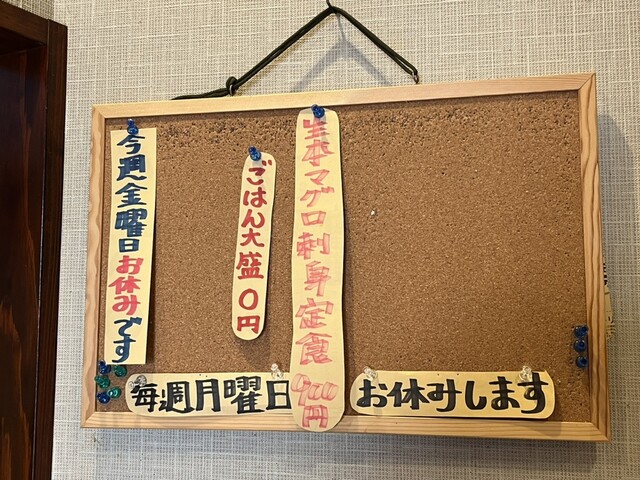 生本マグロ刺身定食900円
ごはん大盛0円
今週金曜日お休みです
毎週月曜日
お休みします